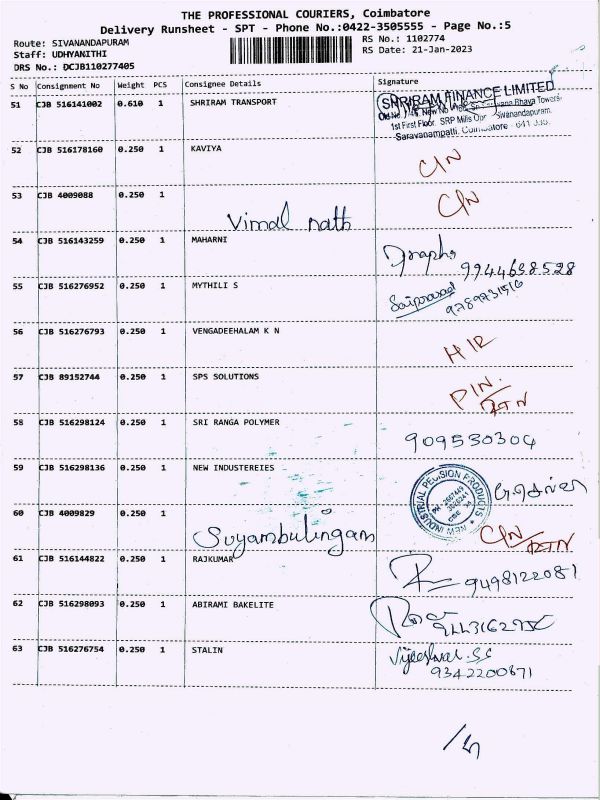 THE PROFESSIONAL COURIERS, Coimbatore
Delivery Runsheet - SPT - Phone No.:0422-3505555 - Page No.:5
Route: SIVANANDAPURAM
RS No.: 1102774
Staff: UDHYANITHI
RS Date: 21-Jan-2023
DRS No.: DCJB110277405
S No Consignment No Weight PCS Consignee Details Signature
51 CJB 516141002 0.610 1 SHRIRAM TRANSPORT
SHRIRAM FINANCE LIMITED
1st First Floor, SRP Mills Opp Sivanandapuram,
Saravanampatti, Coimbatore - 641 035.
52 CJB 516178160 0.250 1 KAVIYA C/N
53 CJB 4009088 0.250 1 C/N
Vimal nath
54 CJB 516143259 0.250 1 MAHARNI
9944698528
55 CJB 516276952 0.250 1 MYTHILI S Saiprasad
56 CJB 516276793 0.250 1 VENGADEEHALAM K N
57 CJB 89152744 0.250 1 SPS SOLUTIONS
58 CJB 516298124 0.250 1 SRI RANGA POLYMER 909530304
59 CJB 516298136 0.250 1 NEW INDUSTEREIES
NEW INDUSTRIAL PECISION PRODUCTS
60 CJB 4009829 0.250 1 C/N
Suyambulingam
61 CJB 516144822 0.250 1 RAJKUMAR 9498122081
62 CJB 516298093 0.250 1 ABIRAMI BAKELITE
63 CJB 516276754 0.250 1 STALIN
9342200871